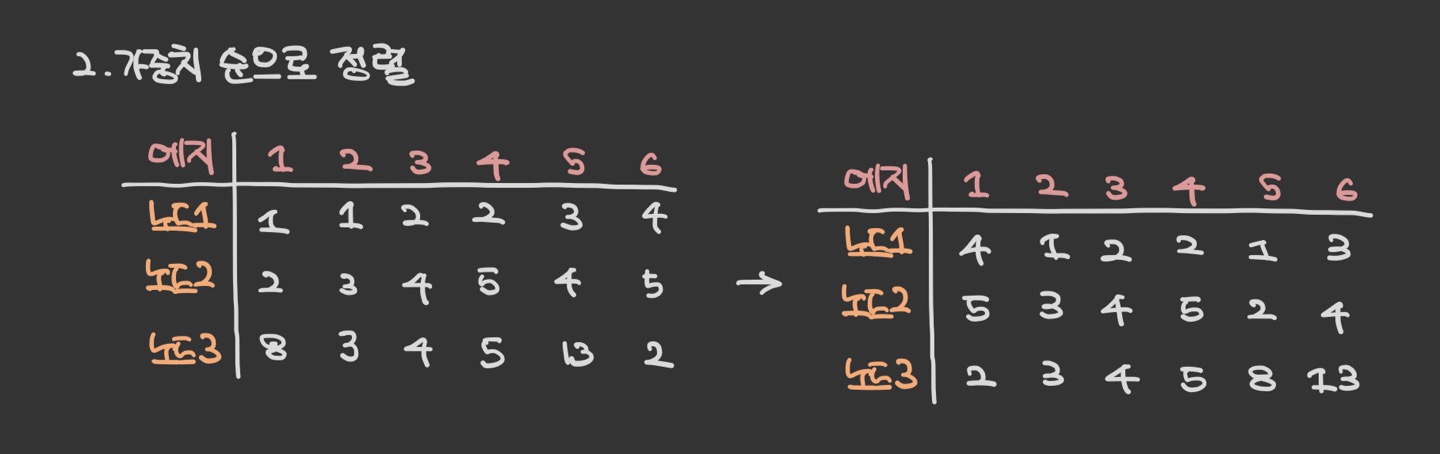 2. 가중치 순으로 정렬
에지 1 2 3 4 5 6
노드1 1 1 2 2 3 4
노드2 2 3 4 5 4 5
노드3 8 3 4 5 13 2
→
에지 1 2 3 4 5 6
노드1 4 1 2 2 1 3
노드2 5 3 4 5 2 4
노드3 2 3 4 5 8 13